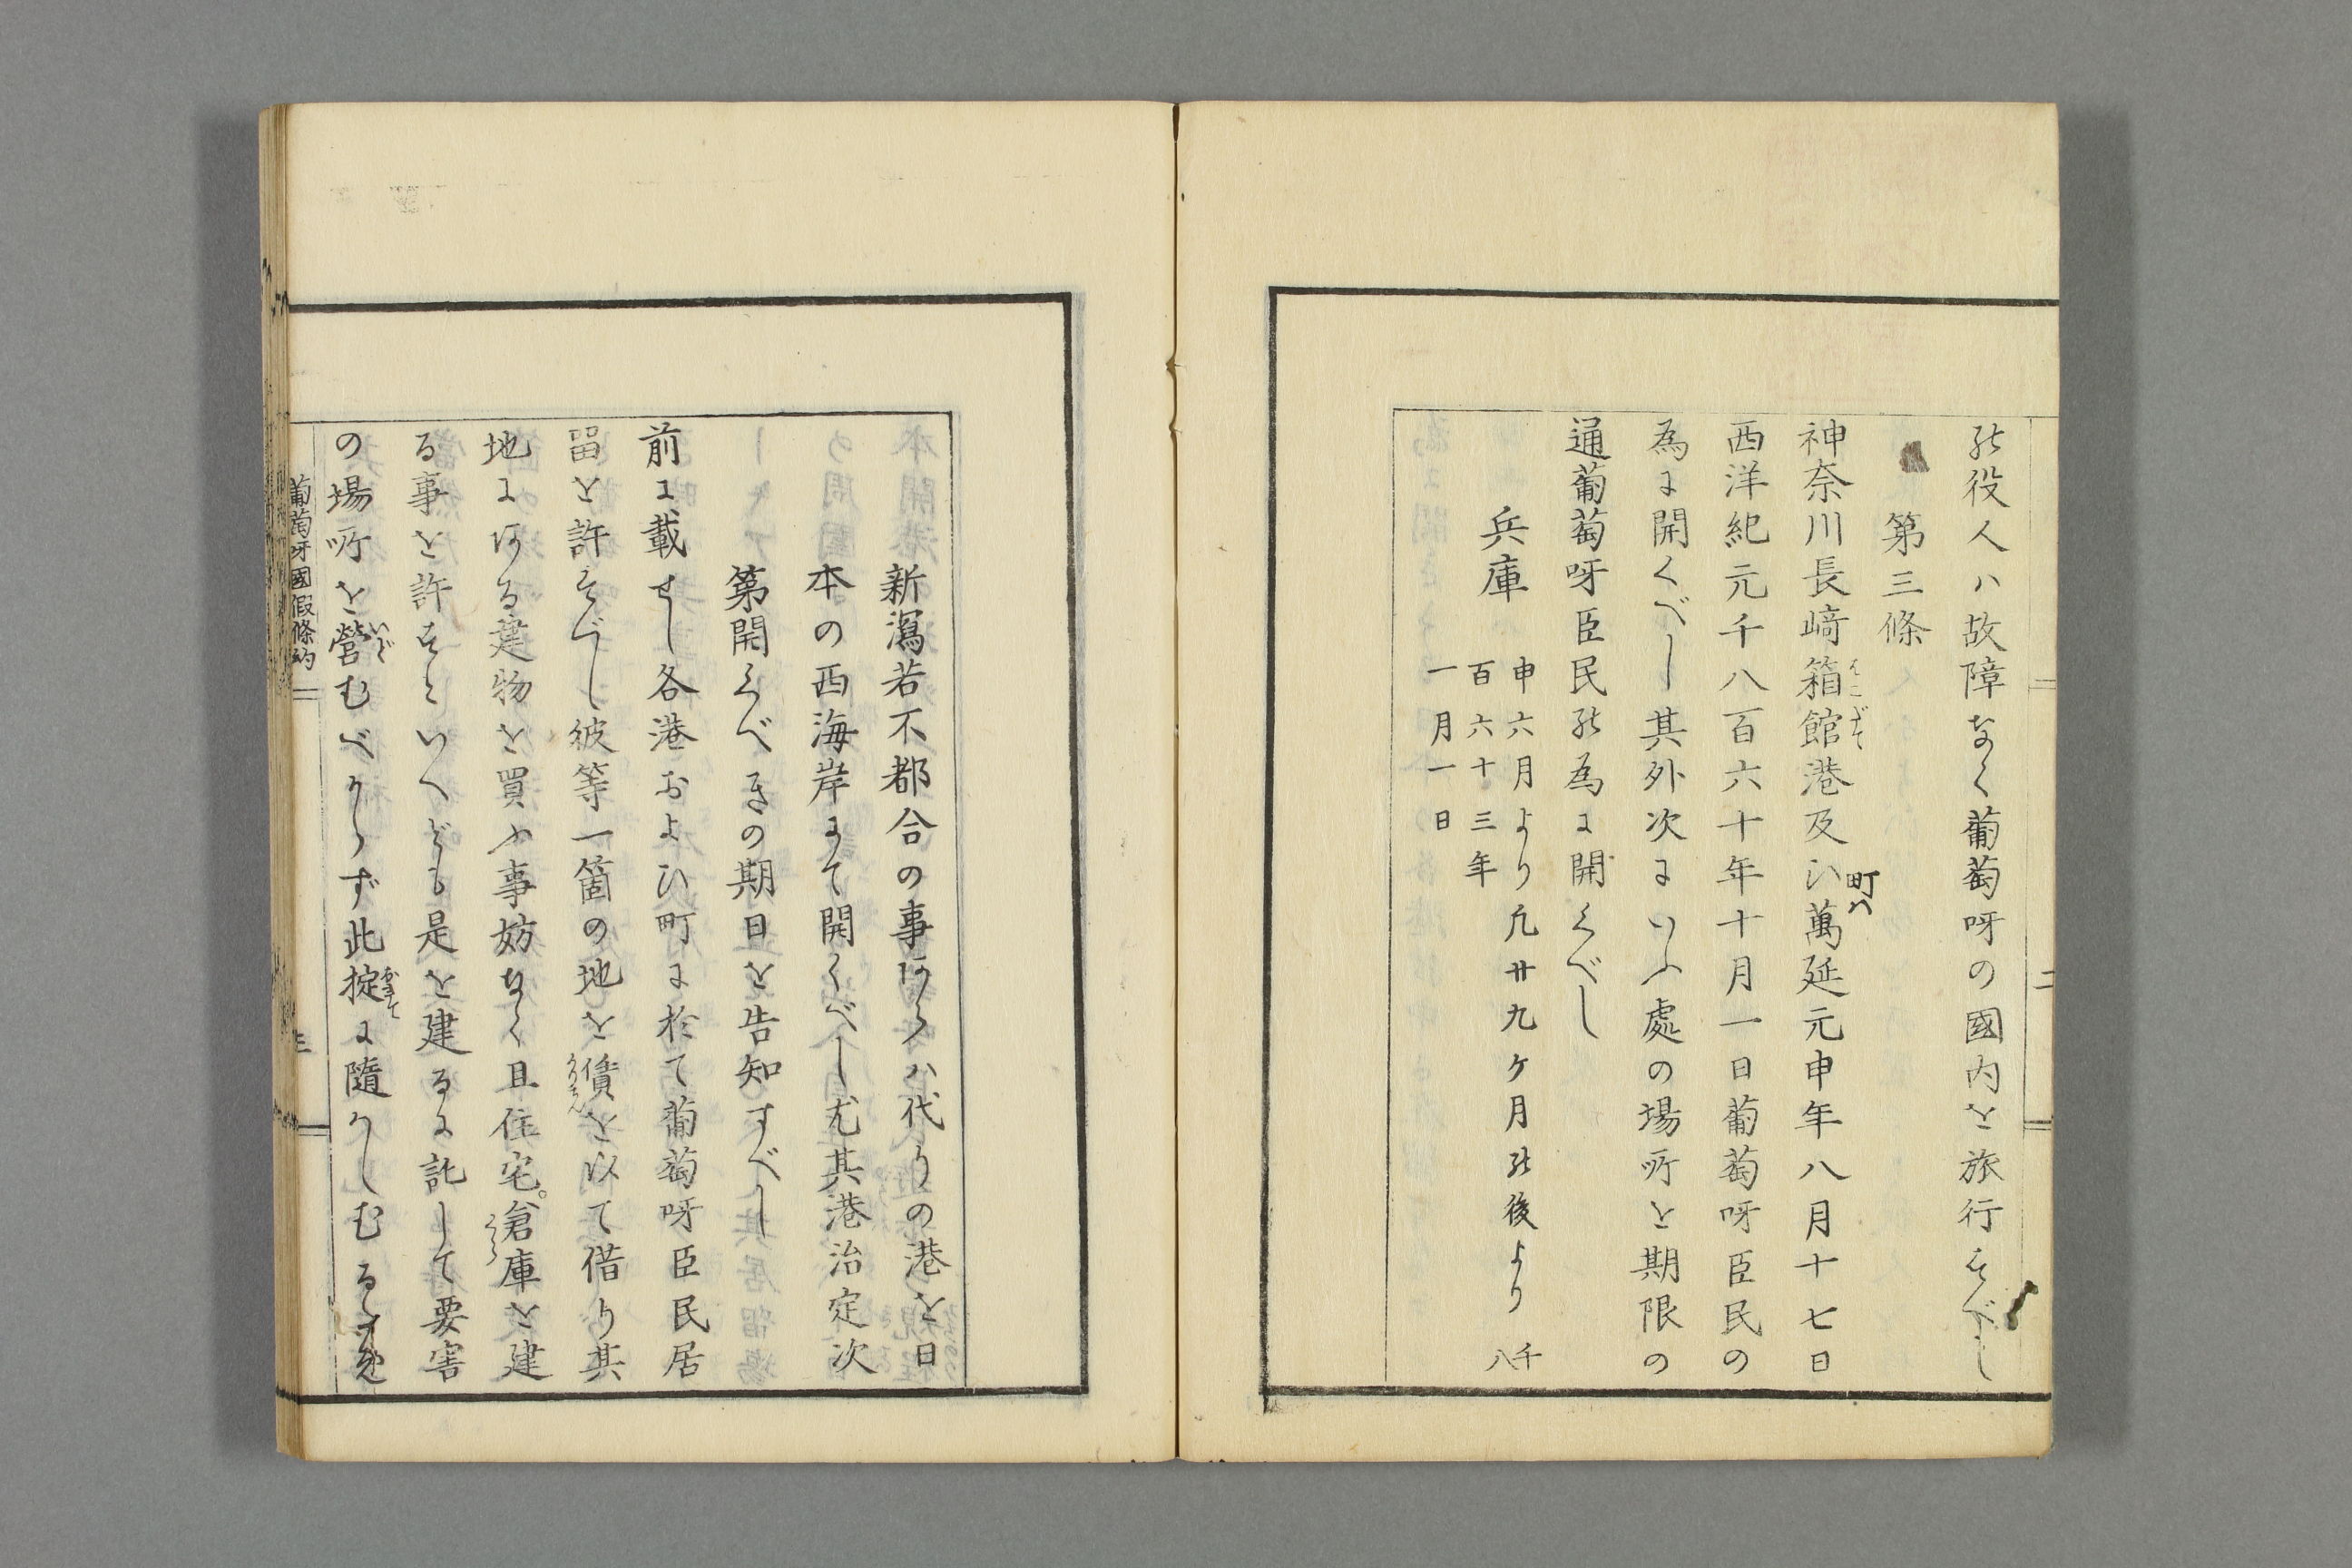 の役人ハ故障なく葡萄呀の國内を旅行すべし
第三條
神奈川長﨑箱館港及ひ町ハ萬延元申年八月十七日
はこだて
西洋紀元千八百六十年十月一日葡萄呀臣民の
為に開くべし其外次にいふ處の場所を期限の
通葡萄呀臣民の為に開くべし
兵庫
申六月より凡廿九ケ月の後より千八
百六十三年
一月一日
二
新瀉若不都合の事あらハ代りの港を日
本の西海岸にて開くべし尤其港治定次
第開くべきの期日を告知すべし
前に載せし各港および町に於て葡萄呀臣民居
留を許すべし彼等一箇の地を賃を以て借り其
地にある建物を買ふ事妨なく且住宅。倉庫を建
くら
る事を許すといへども是を建るに託して要害
の場所を營むべからず此掟に隨かしむる
おきて
葡萄呀國假條約
三